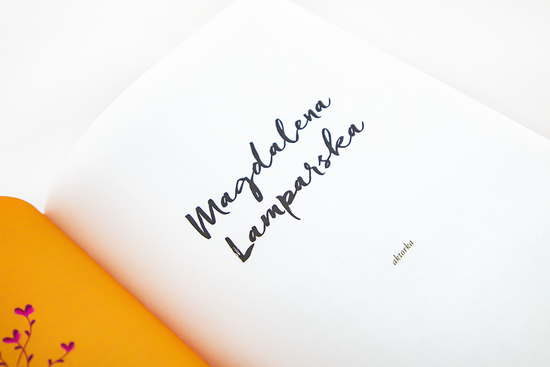 Magdalena
Lamparska
aktorka